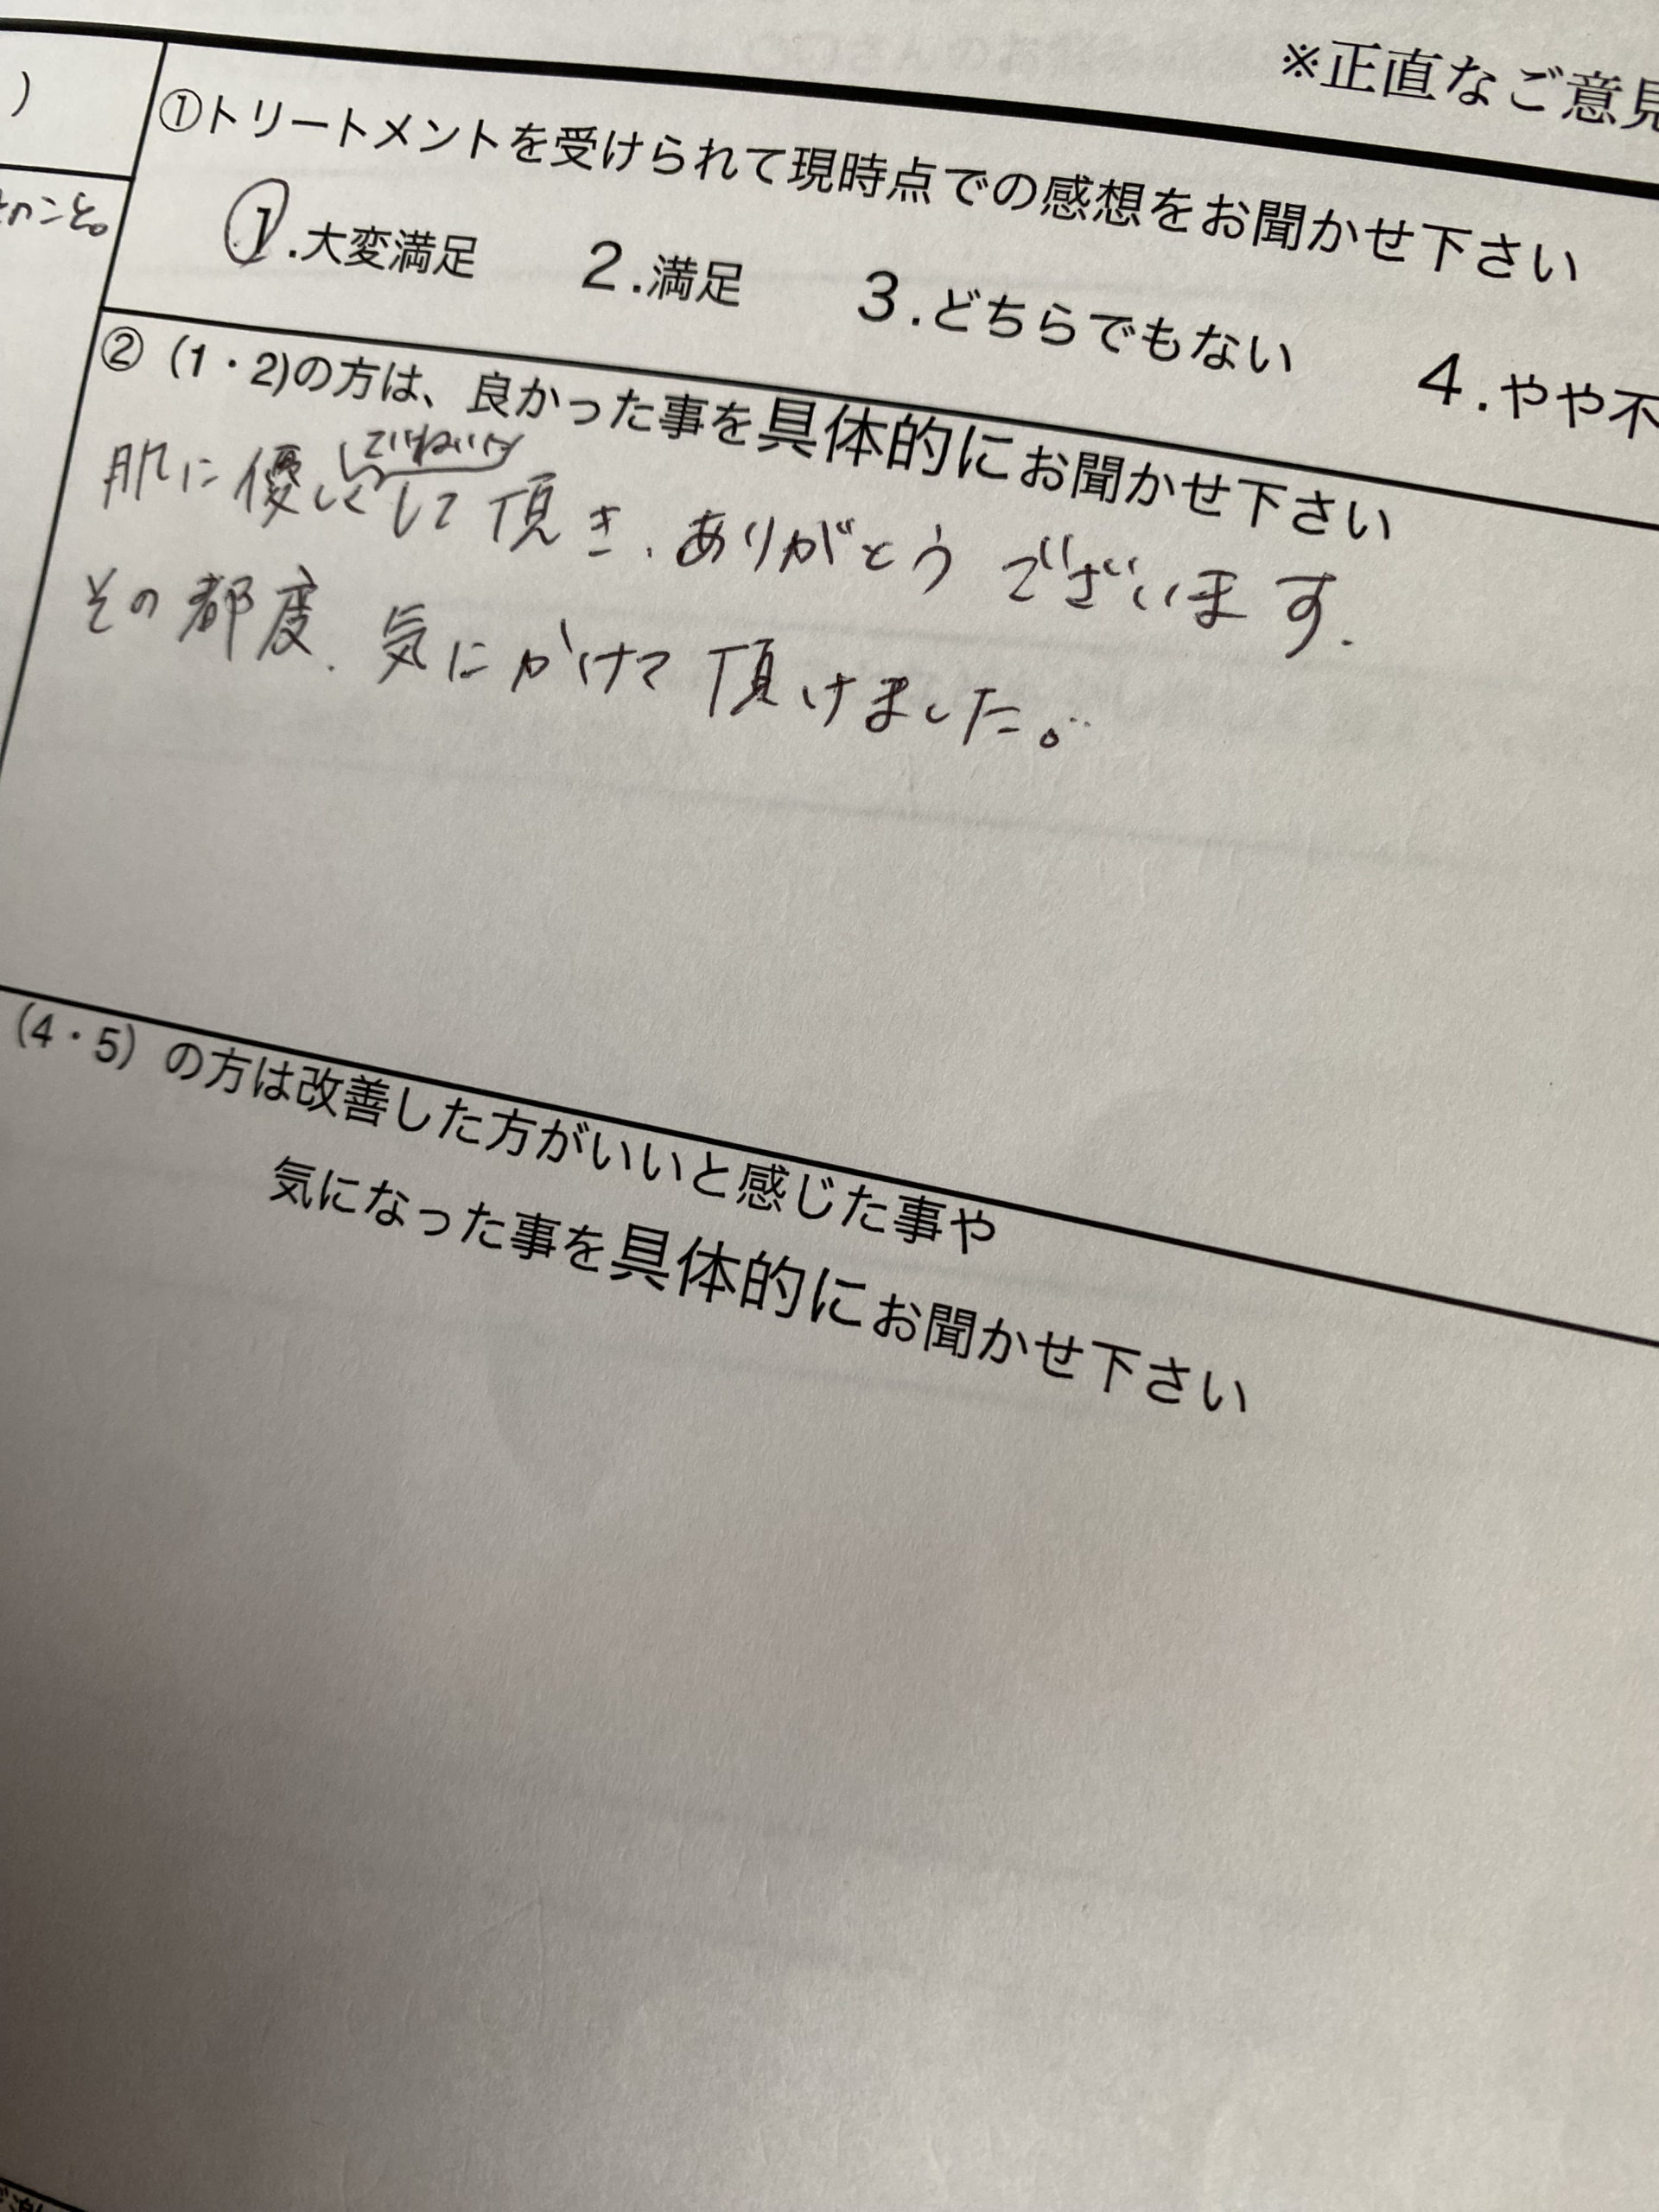 ※正直なご意見
)
①トリートメントを受けられて現時点での感想をお聞かせ下さい
のこと。
1.大変満足 2.満足 3.どちらでもない 4.やや不
②(1・2)の方は、良かった事を具体的にお聞かせ下さい
ていねいに
肌に優しくして頂き、ありがとうございます.
その都度、気にかけて頂けました。
(4・5)の方は改善した方がいいと感じた事や
気になった事を具体的にお聞かせ下さい